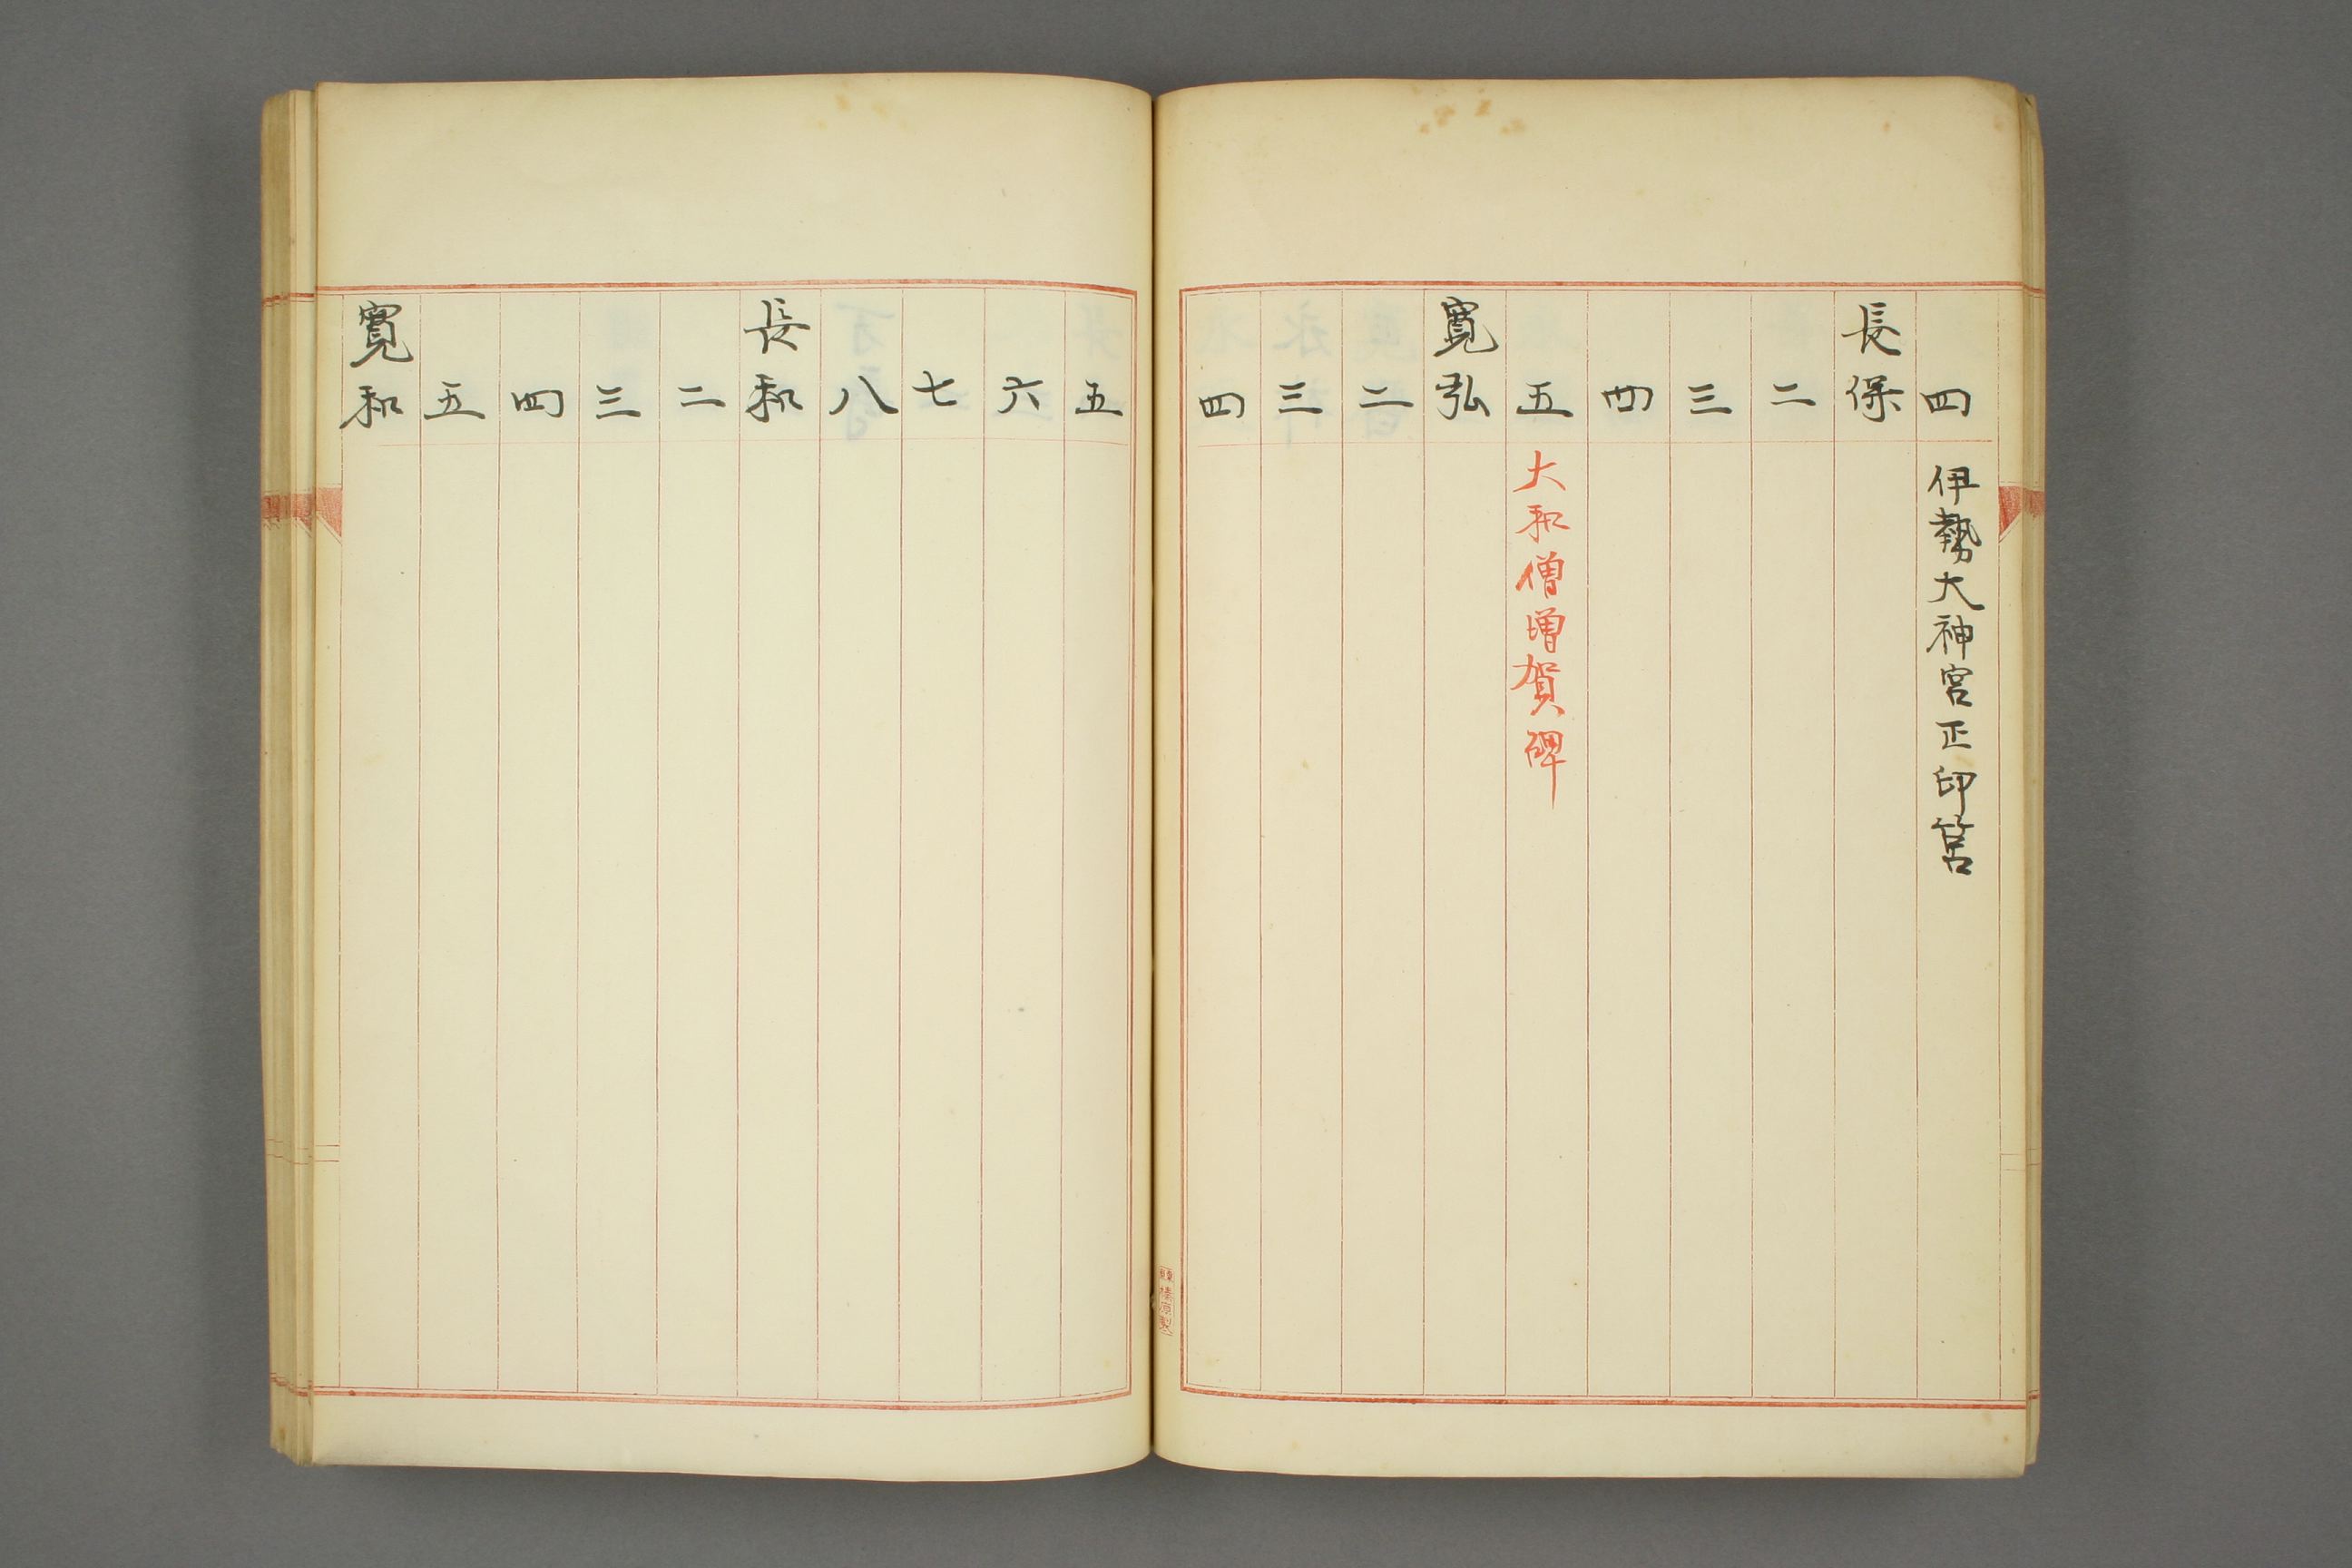 四 伊勢大神宮正印筥
長保
二
三
四
五 大和僧増賀碑
寛弘
二
三
四
五
六
七
八
長和
二
三
四
五
寛和
榛原製